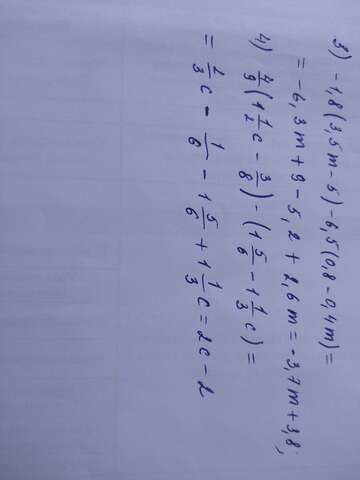 3) -1,8(3,5m-5)-6,5(0,8-0,4m)=
= -6,3m+9-5,2+2,6m=-3,7m+3,8;
4) 4/9(1 1/2c - 3/8) - (1 5/6 - 1 1/3c)=
= 2/3c - 1/6 - 1 5/6 + 1 1/3c = 2c - 2